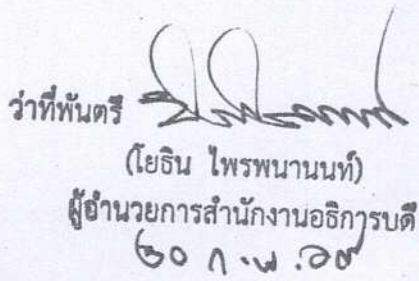 ว่าที่พันตรี
(โยธิน ไพรพนานนท์)
ผู้อำนวยการสำนักงานอธิการบดี
๒๐ ก.พ.